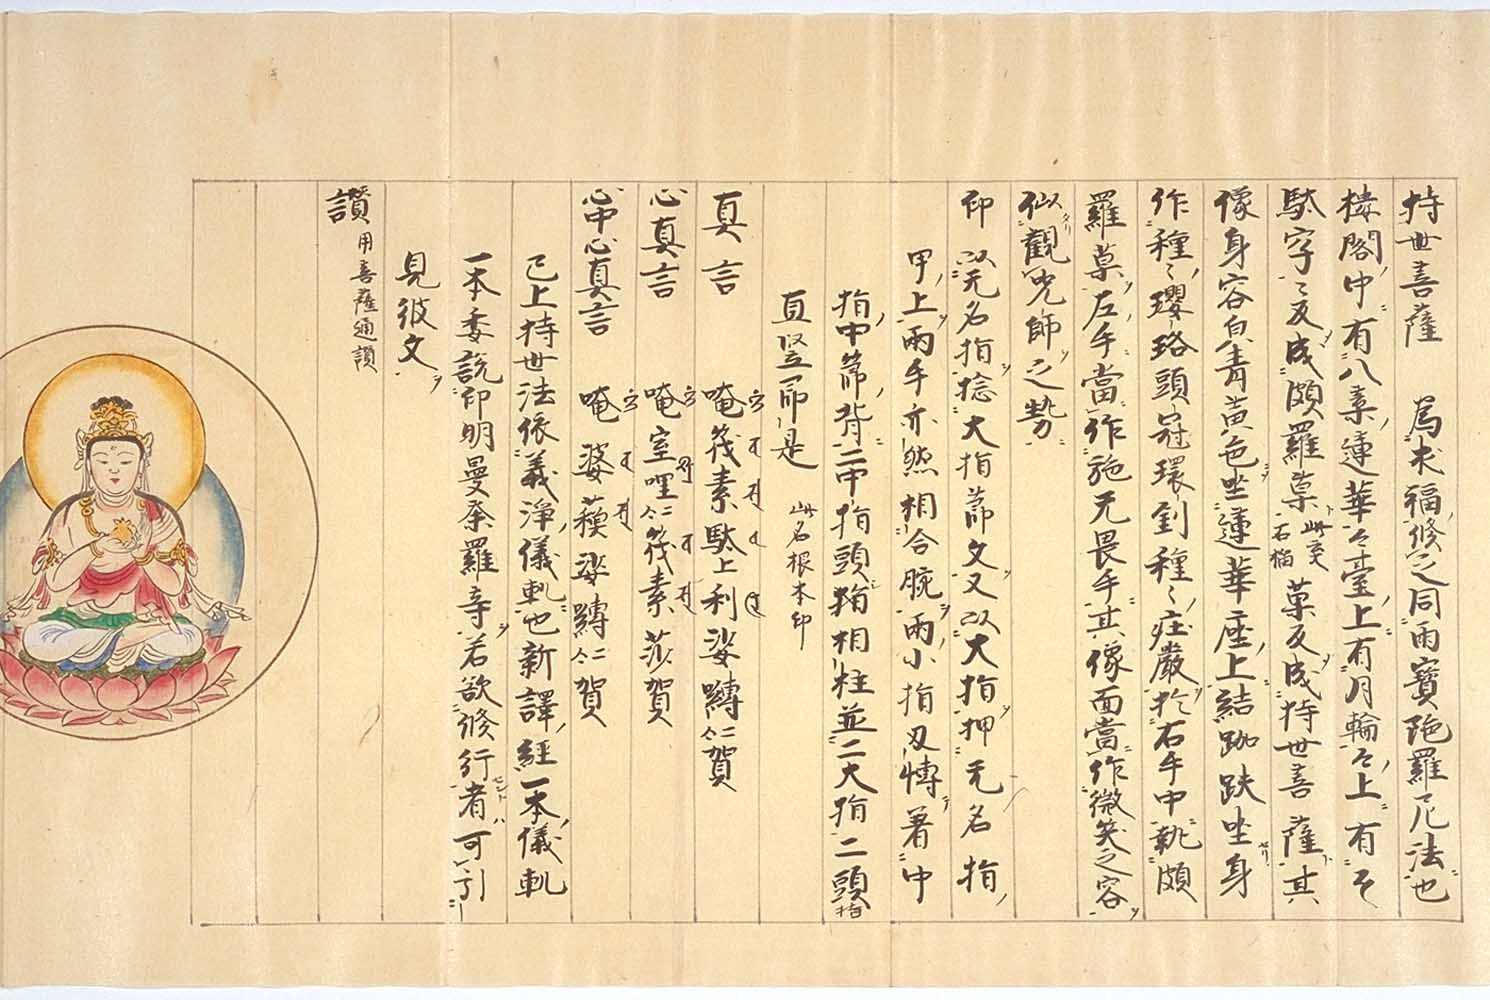 持世菩薩 為求福修之同雨寶陁羅尼法也
樓閣中有八葉蓮華々臺上有月輪々上有
駄字々反成頗羅菓此云石榴菓反成持世菩薩其
像身容白青黄色坐蓮華座上結跏趺坐身
作種々瓔珞頭冠環釧種々庄嚴於右手中執頗
羅菓左手當作施无畏手其像面當作微笑之容
似觀咒師之勢
印 以无名指捻大指第文又以大指押无名指
甲上兩手亦然相合腕兩小指及博著中
指中節背二中指頭指相柱並二大指二頭指
直竪即是 此名根本印
真言 唵筏素駄上利娑嚩二合賀
心真言 唵室哩二合筏素莎賀
心中心真言 唵婆蘓娑嚩二合賀
已上持世法依義淨儀軌也新譯經一本儀軌
一本委説印明曼荼羅等若欲修行者可引
見彼文
讃 用菩薩通讃